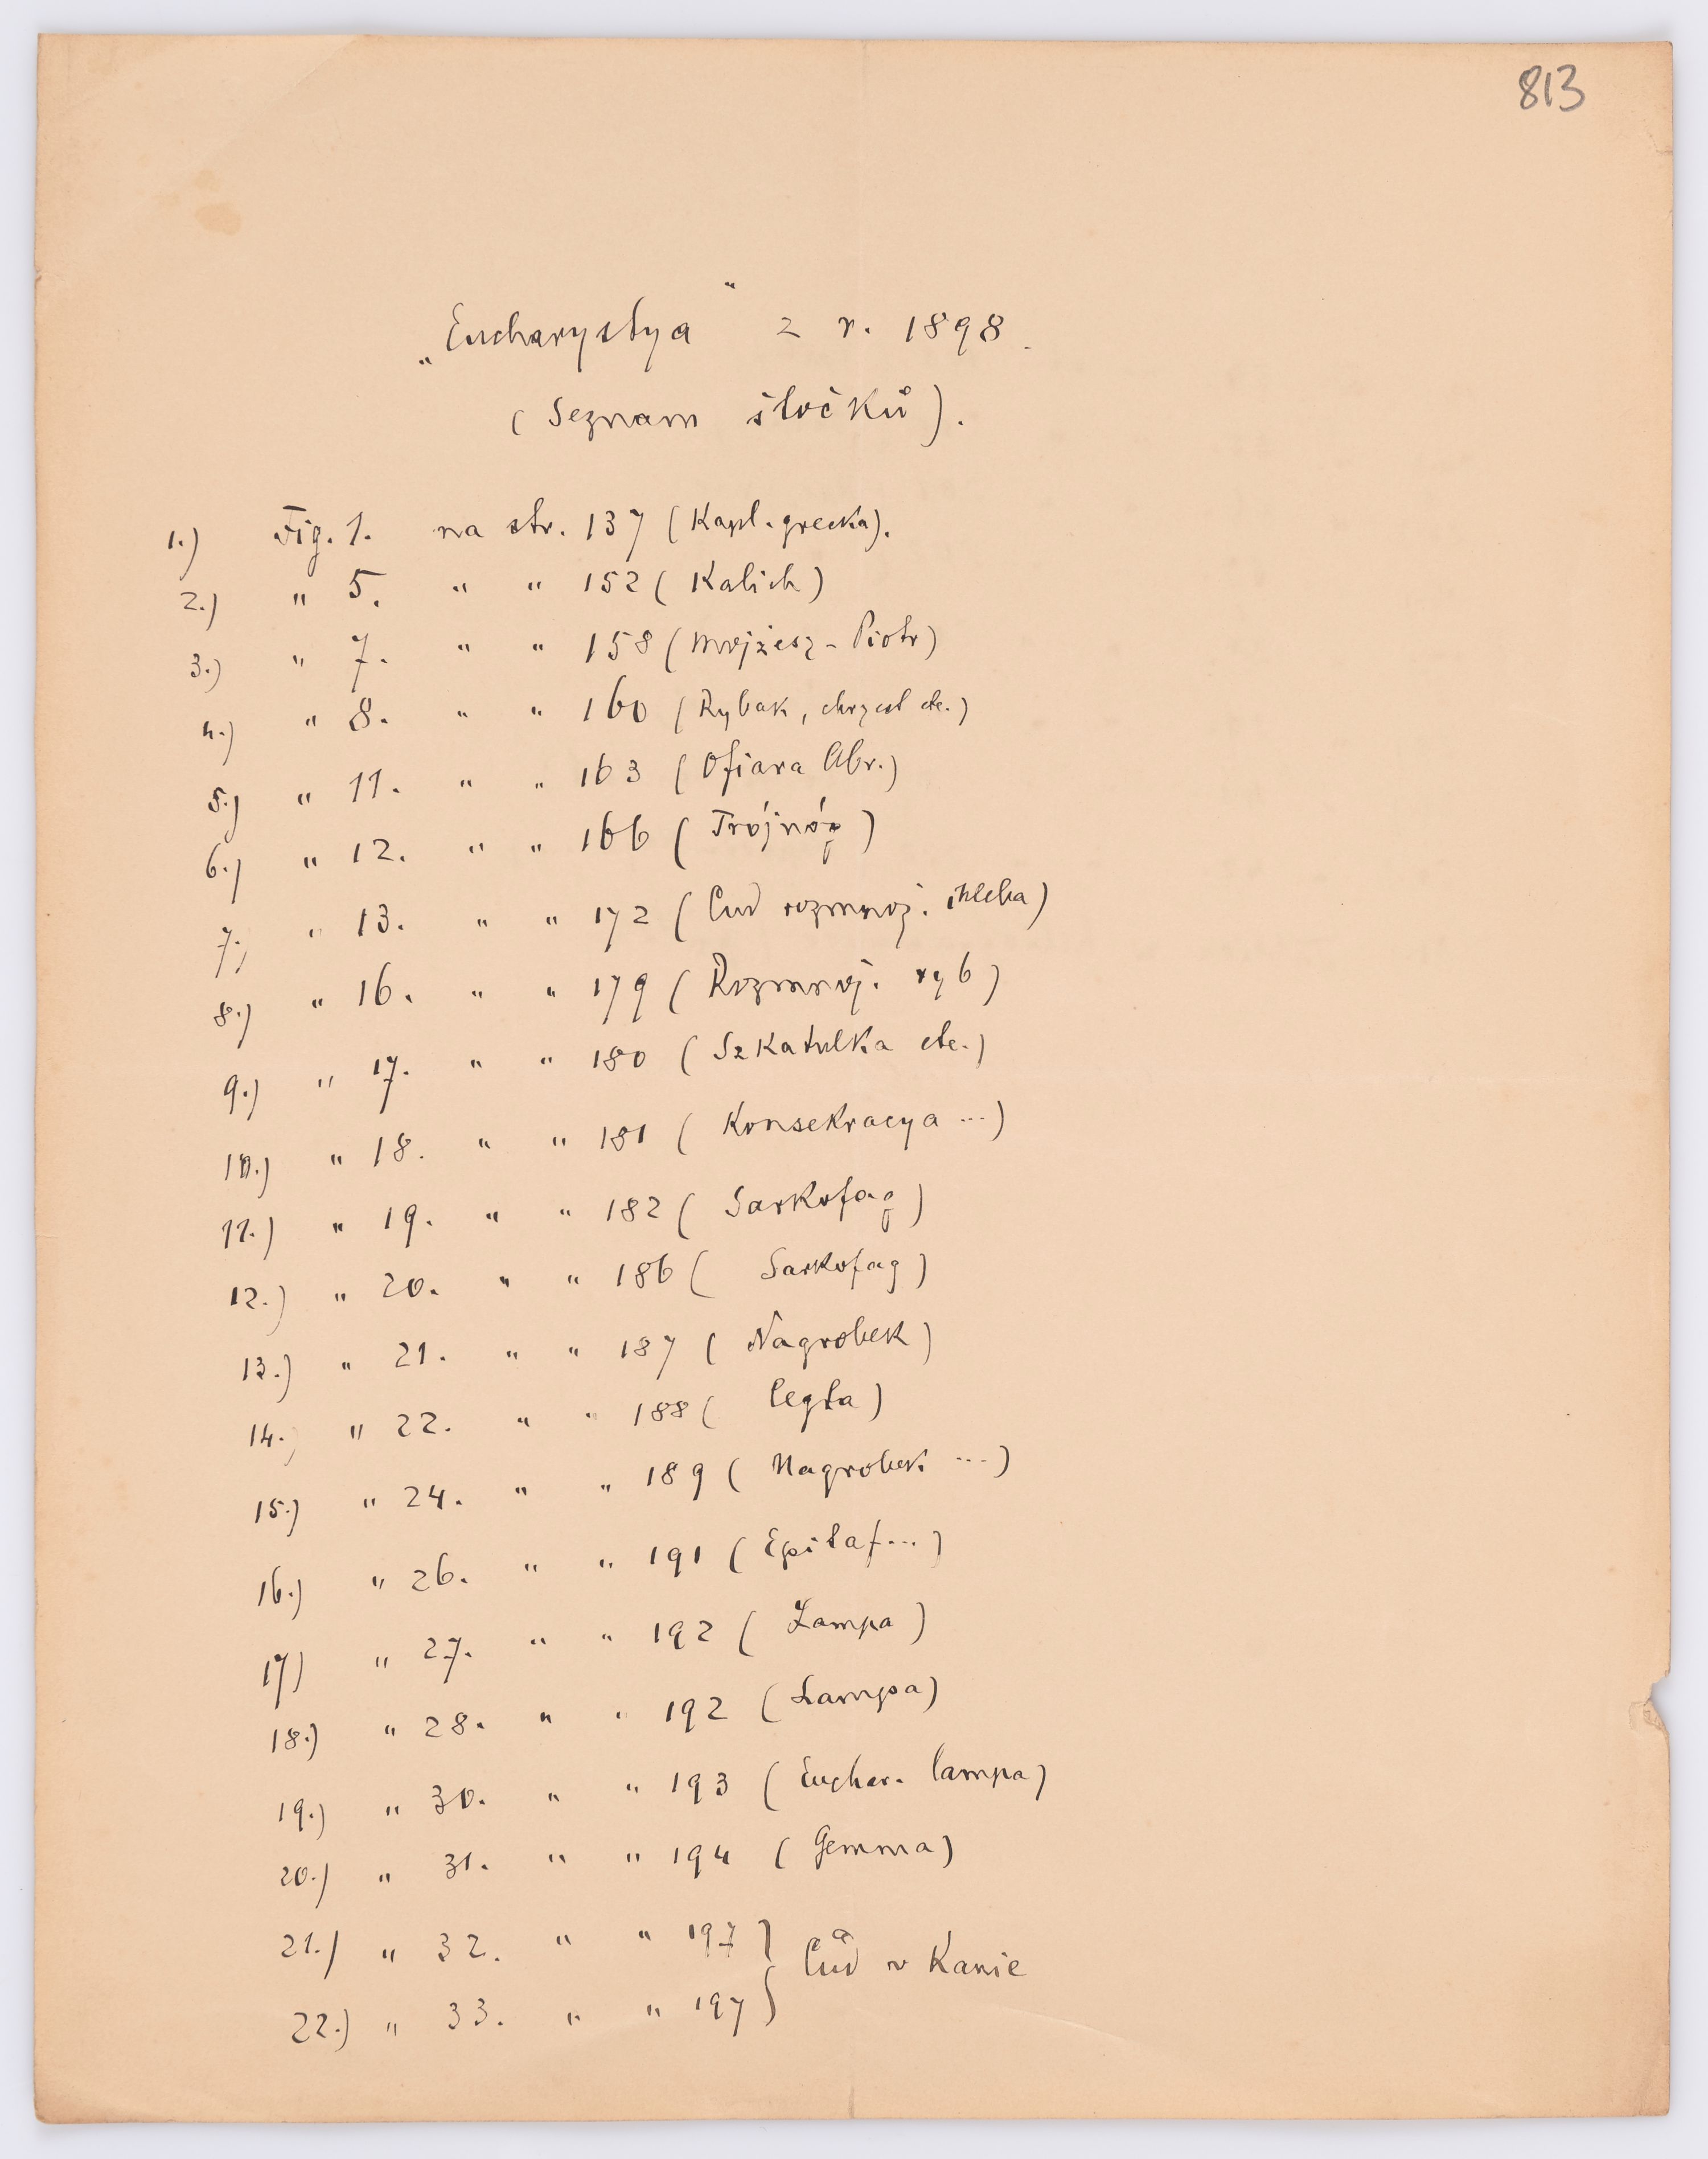 813
„Eucharystya“ z r. 1898.
(Seznam štočků).
1.) Fig. 1. na str. 137 (Kapl. grecka).
2.) " 5. " " 152 (Kalich)
3.) " 7. " " 158 (Mojżesz - Piotr)
4.) " 8. " " 160 (Rybak, chrzest etc.)
5.) " 11. " " 163 (Ofiara Abr.)
6.) " 12. " " 166 (Trójnóg)
7.) " 13. " " 172 (Cud rozmnoż. chleba)
8.) " 16. " " 179 (Rozmnoż. ryb)
9.) " 17. " " 180 (Szkatulka etc.)
10.) " 18. " " 181 (Konsekracya ...)
11.) " 19. " " 182 (Sarkofag)
12.) " 20. " " 186 (Sarkofag)
13.) " 21. " " 187 (Nagrobek)
14.) " 22. " " 188 (Cegła)
15.) " 24. " " 189 (Nagrobek ...)
16.) " 26. " " 191 (Epitaf...)
17) " 27. " " 192 (Lampa)
18.) " 28. " " 192 (Lampa)
19.) " 30. " " 193 (Euchar. lampa)
20.) " 31. " " 194 (Gemma)
21.) " 32. " " 197 } Cud w Kanie
22.) " 33. " " 197 }